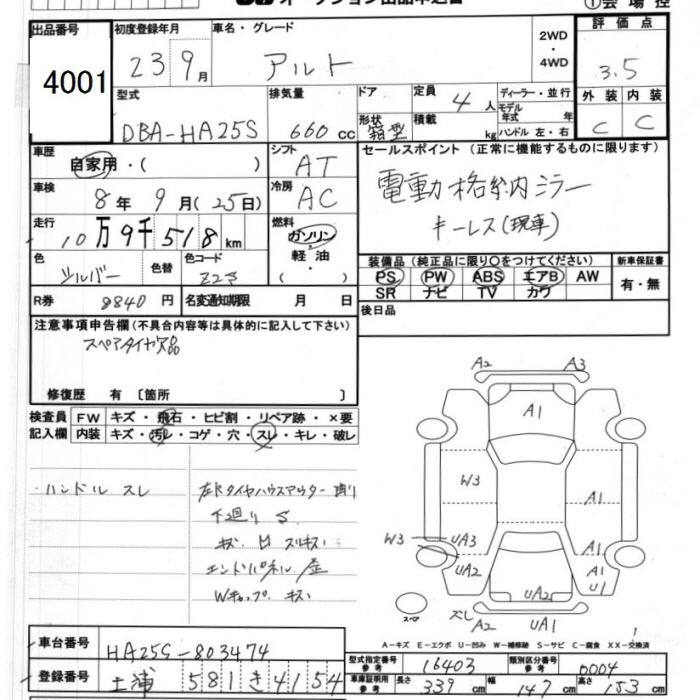 オークション出品申込書
①会場控
出品番号 初度登録年月 車名・グレード 2WD・4WD 評価点
4001 23 9月 アルト 3.5
型式 排気量 ドア 定員 ディーラー・並行 外装 内装
DBA-HA25S 660 cc 形状 箱型 4人 積載 kg モデル年式 年 ハンドル 左・右 C C
車歴 自家用・( ) シフト AT セールスポイント (正常に機能するものに限ります)
車検 8年 9月 (25日) 冷房 AC 電動格納ミラー
走行 10万9千518km 燃料 ガソリン・軽油・ キーレス(現車)
色 シルバー 色替 色コード Z2S 装備品 (純正品に限り〇をつけてください) 新車保証書
PS PW ABS エアB AW 有・無
SR ナビ TV カワ
R券 8840円 名変通知期限 月 日 後日品
注意事項申告欄 (不具合内容等は具体的に記入して下さい)
スペアタイヤ欠品
修復歴 有 〔箇所 〕
検査員記入欄 FW キズ・飛石・ヒビ割・リペア跡・×要
内装 キズ・汚レ・コゲ・穴・スレ・キレ・破レ
ハンドル スレ
下廻り S
エンドパネル
Wキャップ キズ
A2 A3
A1
W3 A1
W3 UA3 A1
UA2 A1
U1
UA2
スペア スレ A2 UA1
A-キズ E-エクボ U-凹み W-補修跡 S-サビ C-腐食 XX-交換済
車台番号 HA25S-803474
登録番号 土浦 581 き 4154
型式指定番号 参考 16403 類別区分番号 参考 0004
車庫証明用 参考 長さ 339cm 幅 147cm 高さ 153cm